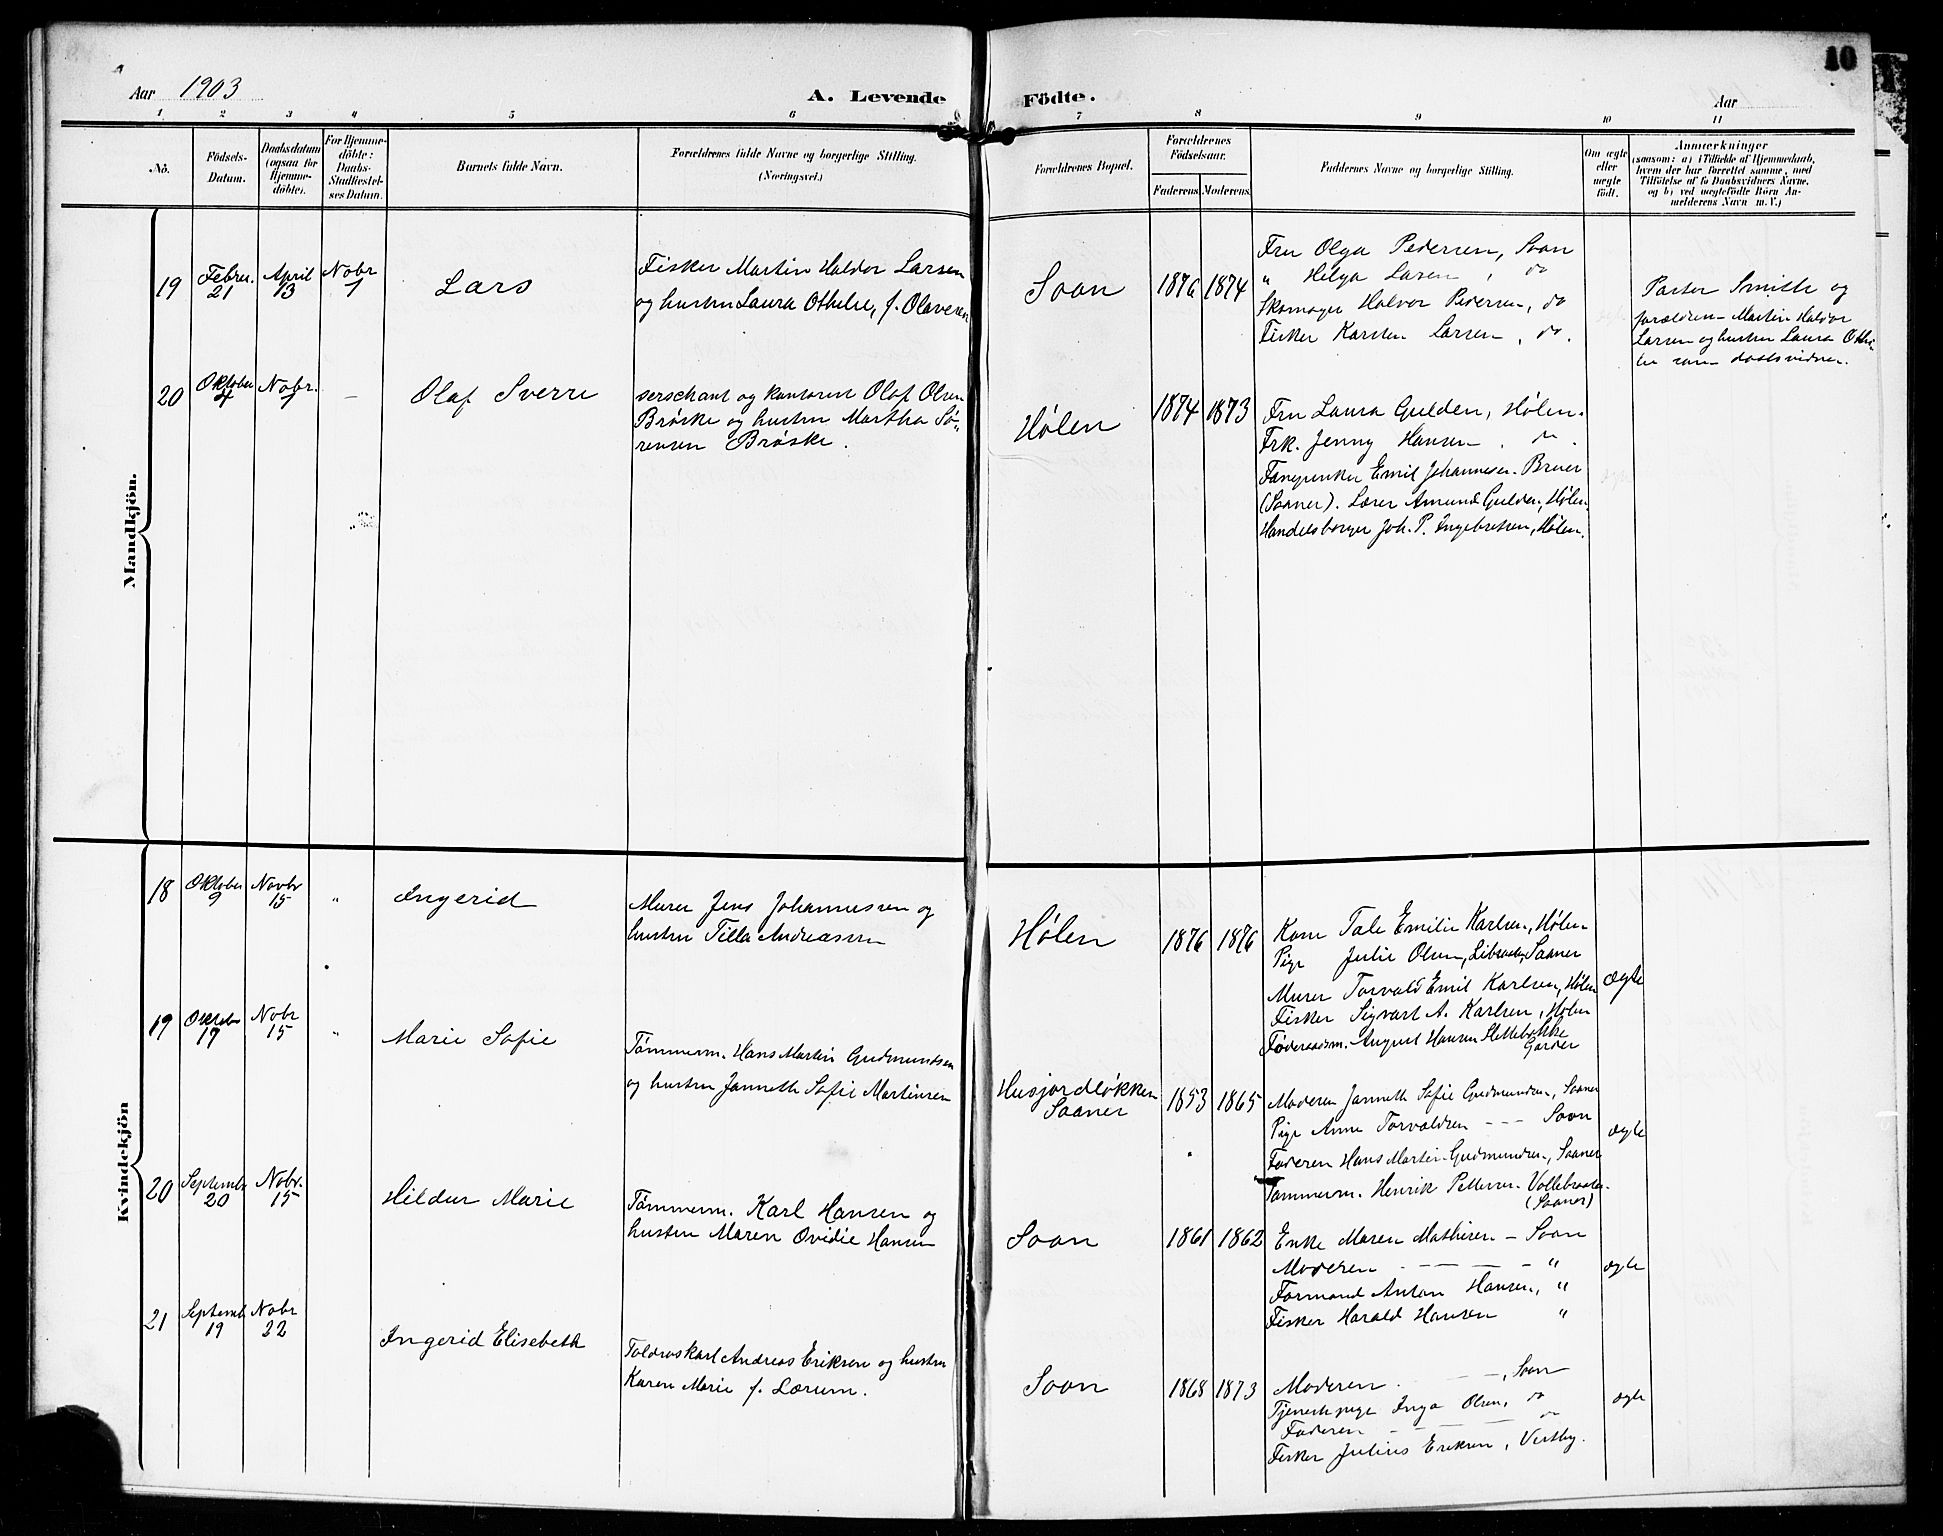 10
Aar 1903
A. Levende Födte.
Aar
1 2 3 4 5 6 7 8 9 10 11
No.
Födsels-Datum.
Daabsdatum (ogsaa for Hjemme-döbte).
For Hjemme-döbte: Daabs-Stadfæstel-ses Datum.
Barnets fulde Navn.
Forældrenes fulde Navne og borgerlige Stilling. (Næringsvei.)
Forældrenes Bopæl.
Forældrenes Födselsaar.
Faderens. Moderens.
Faddernes Navne og borgerlige Stilling.
Om ægte eller uægte födt.
Anmærkninger
(saasom: a) i Tilfælde af Hjemmedaab,
hvem der har forrettet samme, med
Tilföielse af to Daabsvidners Navne,
og b) ved uægtefödte Börn An-
melderens Navn m. V.)
Mandkjön.
19
Febru. 21
April 13
Nobr 1
Lars
Fisker Martin Haldor Larsen
og hustru Laura Othelie, f. Olavesen
Soon
1876 1874
Fru Olga Pedersen, Soon
" Helga Larsen, do
Skomager Halvor Pedersen, do
Fisker Karsten Larsen, do.
Pastor Smith og
forældren Martin Haldor
Larsen og hustru Laura Othe-
lie som daabsvidner.
20
Oktober 4
Nobr. 1
–
Olaf Sverre
serschant og kontorist Olaf Olsen
Brøske og hustru Martha Sø-
rensen Brøske.
Hølen
1874 1873
Fru Laura Gulden, Hølen.
Frk. Jenny Hansen, do.
Emil Johannesen. Bruer
(Saaner). Lærer Amund Gulden, Hølen
Handelsborger Joh. P. Ingebretsen, Hølen.
Kvindekjön
18
Oktober 9
Novbr 15
"
Ingerid
Murer Jens Johannessen og
hustru Tilla Andreassen
Hølen
1876 1876
Kone Tale Emilie Karlsen, Hølen
Pige Julie Olsen, Saaner
Murer Torvald Emil Karlsen, Hølen
Fisker Sigvart A. Karlsen, Hølen
Føderaadsm. August Hansen Slettebakke
Garder
ægte
19
Oktob 17
Nobr 15
"
Marie Sofie
Tømmerm. Hans Martin Gudmundsen
og hustru Janneth Sofie Martinsen
Husjordløkken
Saaner
1853 1865
Moderen Janneth Sofie Gudmundsen, Saaner
Pige Anne Torvaldsen - - - Soon
Faderen Hans Martin Gudmundsen, Saaner
Tømmerm. Henrik Pettersen. Vollebraaten
(Saaner)
ægte
20
Septemb 20
Nobr. 15
Hildur Marie
Tømmerm. Karl Hansen og
hustru Maren Ovidie Hansen
Soon
1861 1862
Enke Maren Mathisen – Soon
Moderen - — — - "
Formand Anton Hansen, "
Fisker Harald Hansen "
ægte
21
Septemb 19
Nobr 22
Ingerid Elisebeth
Toldroskarl Andreas Eriksen og hustru
Karen Marie f. Lærum.
Soon
1868 1873
Moderen —, Soon
Tjenestepige Inga Olsen, do
Faderen — — do
Fisker Julius Eriksen, Vestby.
ægte